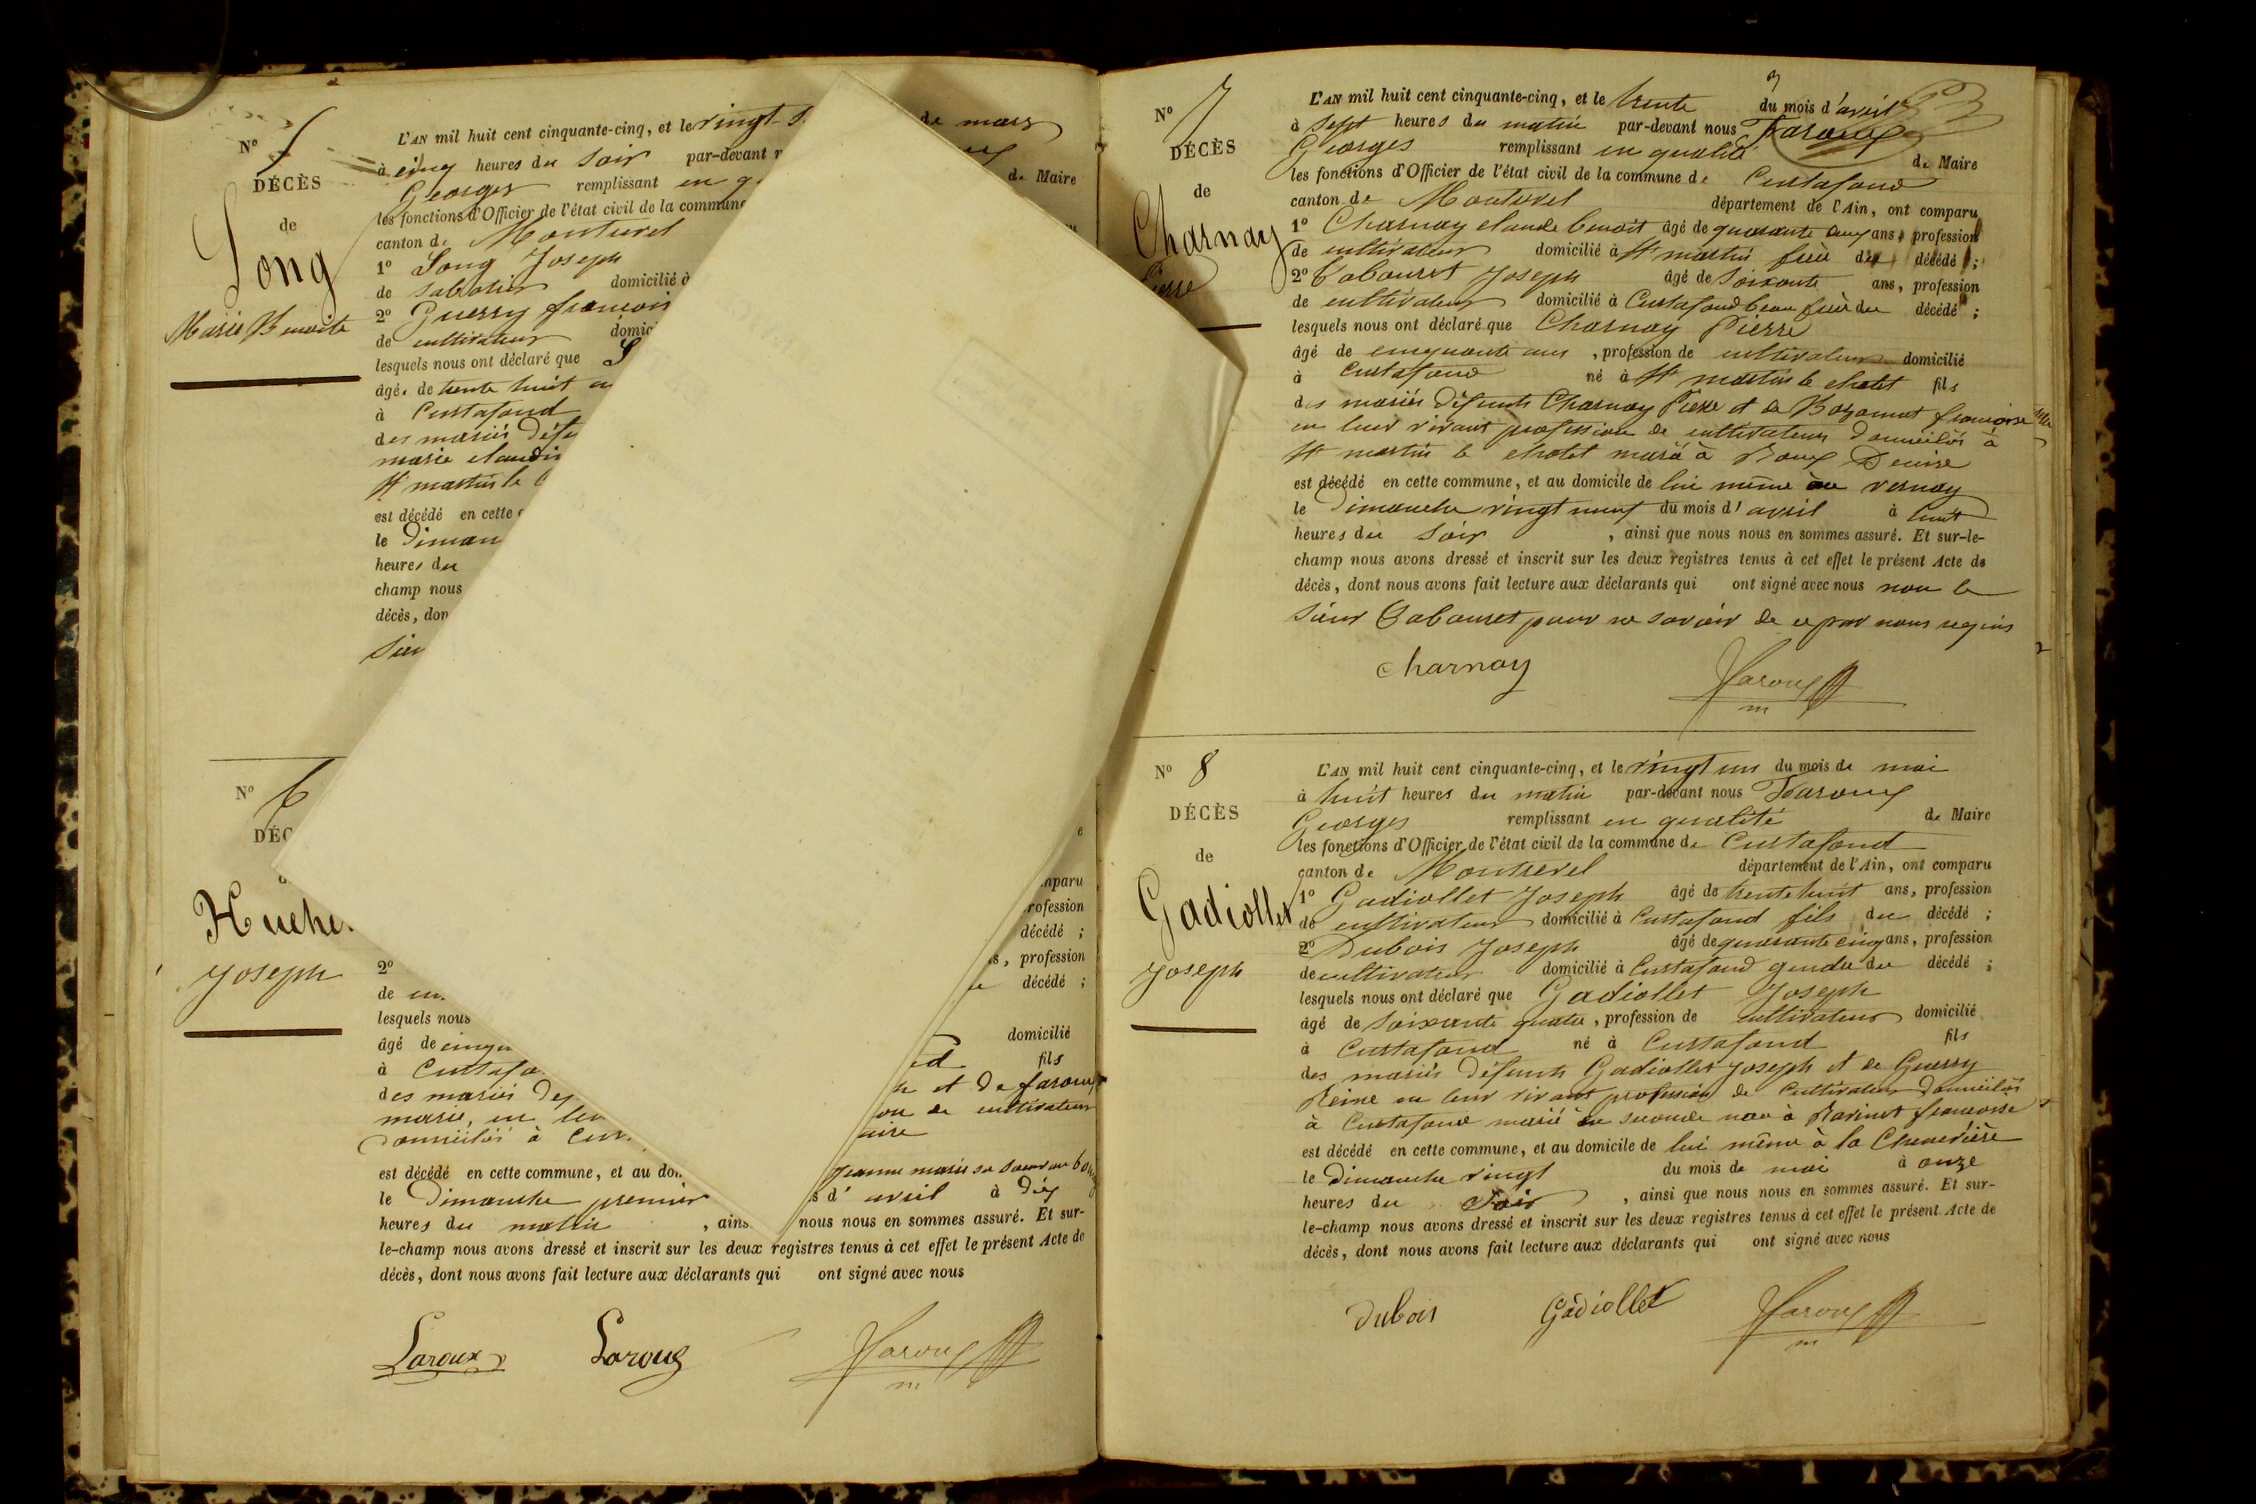 N° 5
DÉCÈS
de
Long
Marie Benoite
L'AN mil huit cent cinquante-cinq, et le vingt-
de mars
à cinq heures du soir par-devant
Georges remplissant en
de Maire
les fonctions d'Officier de l'état civil de la commune
canton de Montrevel
1° Long Joseph
de sabotier domicilié à
2° Guerry françois
de cultivateur
lesquels nous ont déclaré que
âgée de trente huit
à Curtafond
des mariés
marie
St martin le
est décédé en cette
le
heures du
champ nous
décès,
N° 6
Joseph
mparu
rofession
décédé ;
2°
s, profession
de
décédé ;
lesquels nous
domicilié
âgé de
fils
à
des mariés
et de faroux
marie, en
de cultivateur
domiciliés à
est décédé en cette commune, et au
jeanne marie sa soeur au
le Dimanche premier
s d'avril à dix
heures du matin , ains
nous nous en sommes assuré. Et sur-
le-champ nous avons dressé et inscrit sur les deux registres tenus à cet effet le présent Acte de
décès, dont nous avons fait lecture aux déclarants qui ont signé avec nous
Laroux Laroux Faroux
m
N° 7
DÉCÈS
de
Charnay
Pierre
L'AN mil huit cent cinquante-cinq, et le trente du mois d'avril
à sept heures du matin par-devant nous Faroux
Georges remplissant en qualité de Maire
les fonctions d'Officier de l'état civil de la commune de Curtafond
canton de Montrevel département de l'Ain, ont comparu
1° Charnay claude benoit âgé de quarante deux ans, profession
de cultivateur domicilié à St martin frère du décédé ;
2° Tabouret Joseph âgé de soixante ans, profession
de cultivateur domicilié à Curtafond beau frère du décédé ;
lesquels nous ont déclaré que Charnay Pierre
âgé de cinquante ans , profession de cultivateur domicilié
à Curtafond né à St martin le chatel fils
des mariés défunts Charnay Pierre et de françoise
en leur vivant profession de cultivateurs domiciliés à
St martin le chatel marié à Roux Denise
est décédé en cette commune, et au domicile de lui même au vernay
le Dimanche vingt neuf du mois d'avril à huit
heures du soir , ainsi que nous nous en sommes assuré. Et sur-le-
champ nous avons dressé et inscrit sur les deux registres tenus à cet effet le présent Acte de
décès, dont nous avons fait lecture aux déclarants qui ont signé avec nous non le
sieur Tabouret pour ne savoir de ce par nous requis
Charnay Faroux
m
N° 8
DÉCÈS
de
Gadiollet
Joseph
L'AN mil huit cent cinquante-cinq, et le vingt un du mois de mai
à huit heures du matin par-devant nous Faroux
Georges remplissant en qualité de Maire
les fonctions d'Officier de l'état civil de la commune de Curtafond
canton de Montrevel département de l'Ain, ont comparu
1° Gadiollet Joseph âgé de trente huit ans, profession
de cultivateur domicilié à Curtafond fils du décédé ;
2° Dubois Joseph âgé de quarante cinq ans, profession
de cultivateur domicilié à Curtafond gendre du décédé ;
lesquels nous ont déclaré que Gadiollet Joseph
âgé de soixante quatre , profession de cultivateur domicilié
à Curtafond né à Curtafond fils
des mariés défunts Gadiollet Joseph et de Guerry
Reine en leur vivant profession de cultivateur domiciliés
à Curtafond marié en seconde noce à Ravinet françoise
est décédé en cette commune, et au domicile de lui même à la Chenevière
le Dimanche vingt du mois de mai à onze
heures du soir , ainsi que nous nous en sommes assuré. Et sur-
le-champ nous avons dressé et inscrit sur les deux registres tenus à cet effet le présent Acte de
décès, dont nous avons fait lecture aux déclarants qui ont signé avec nous
Dubois Gadiollet Faroux
m